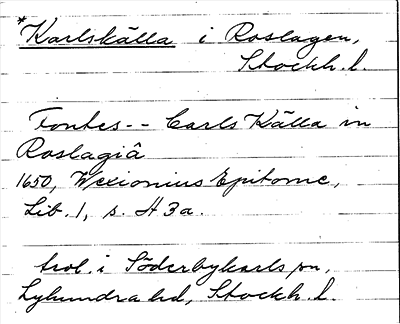 *Karlskälla i Roslagen,
Stockh. l.
Fontes -- Carls Källa in
Roslagiâ
1650, Wexionius Epitome,
Lib. 1, s. H3a.
trol. i Söderbykarls sn,
Lyhundra hd, Stockh. l.